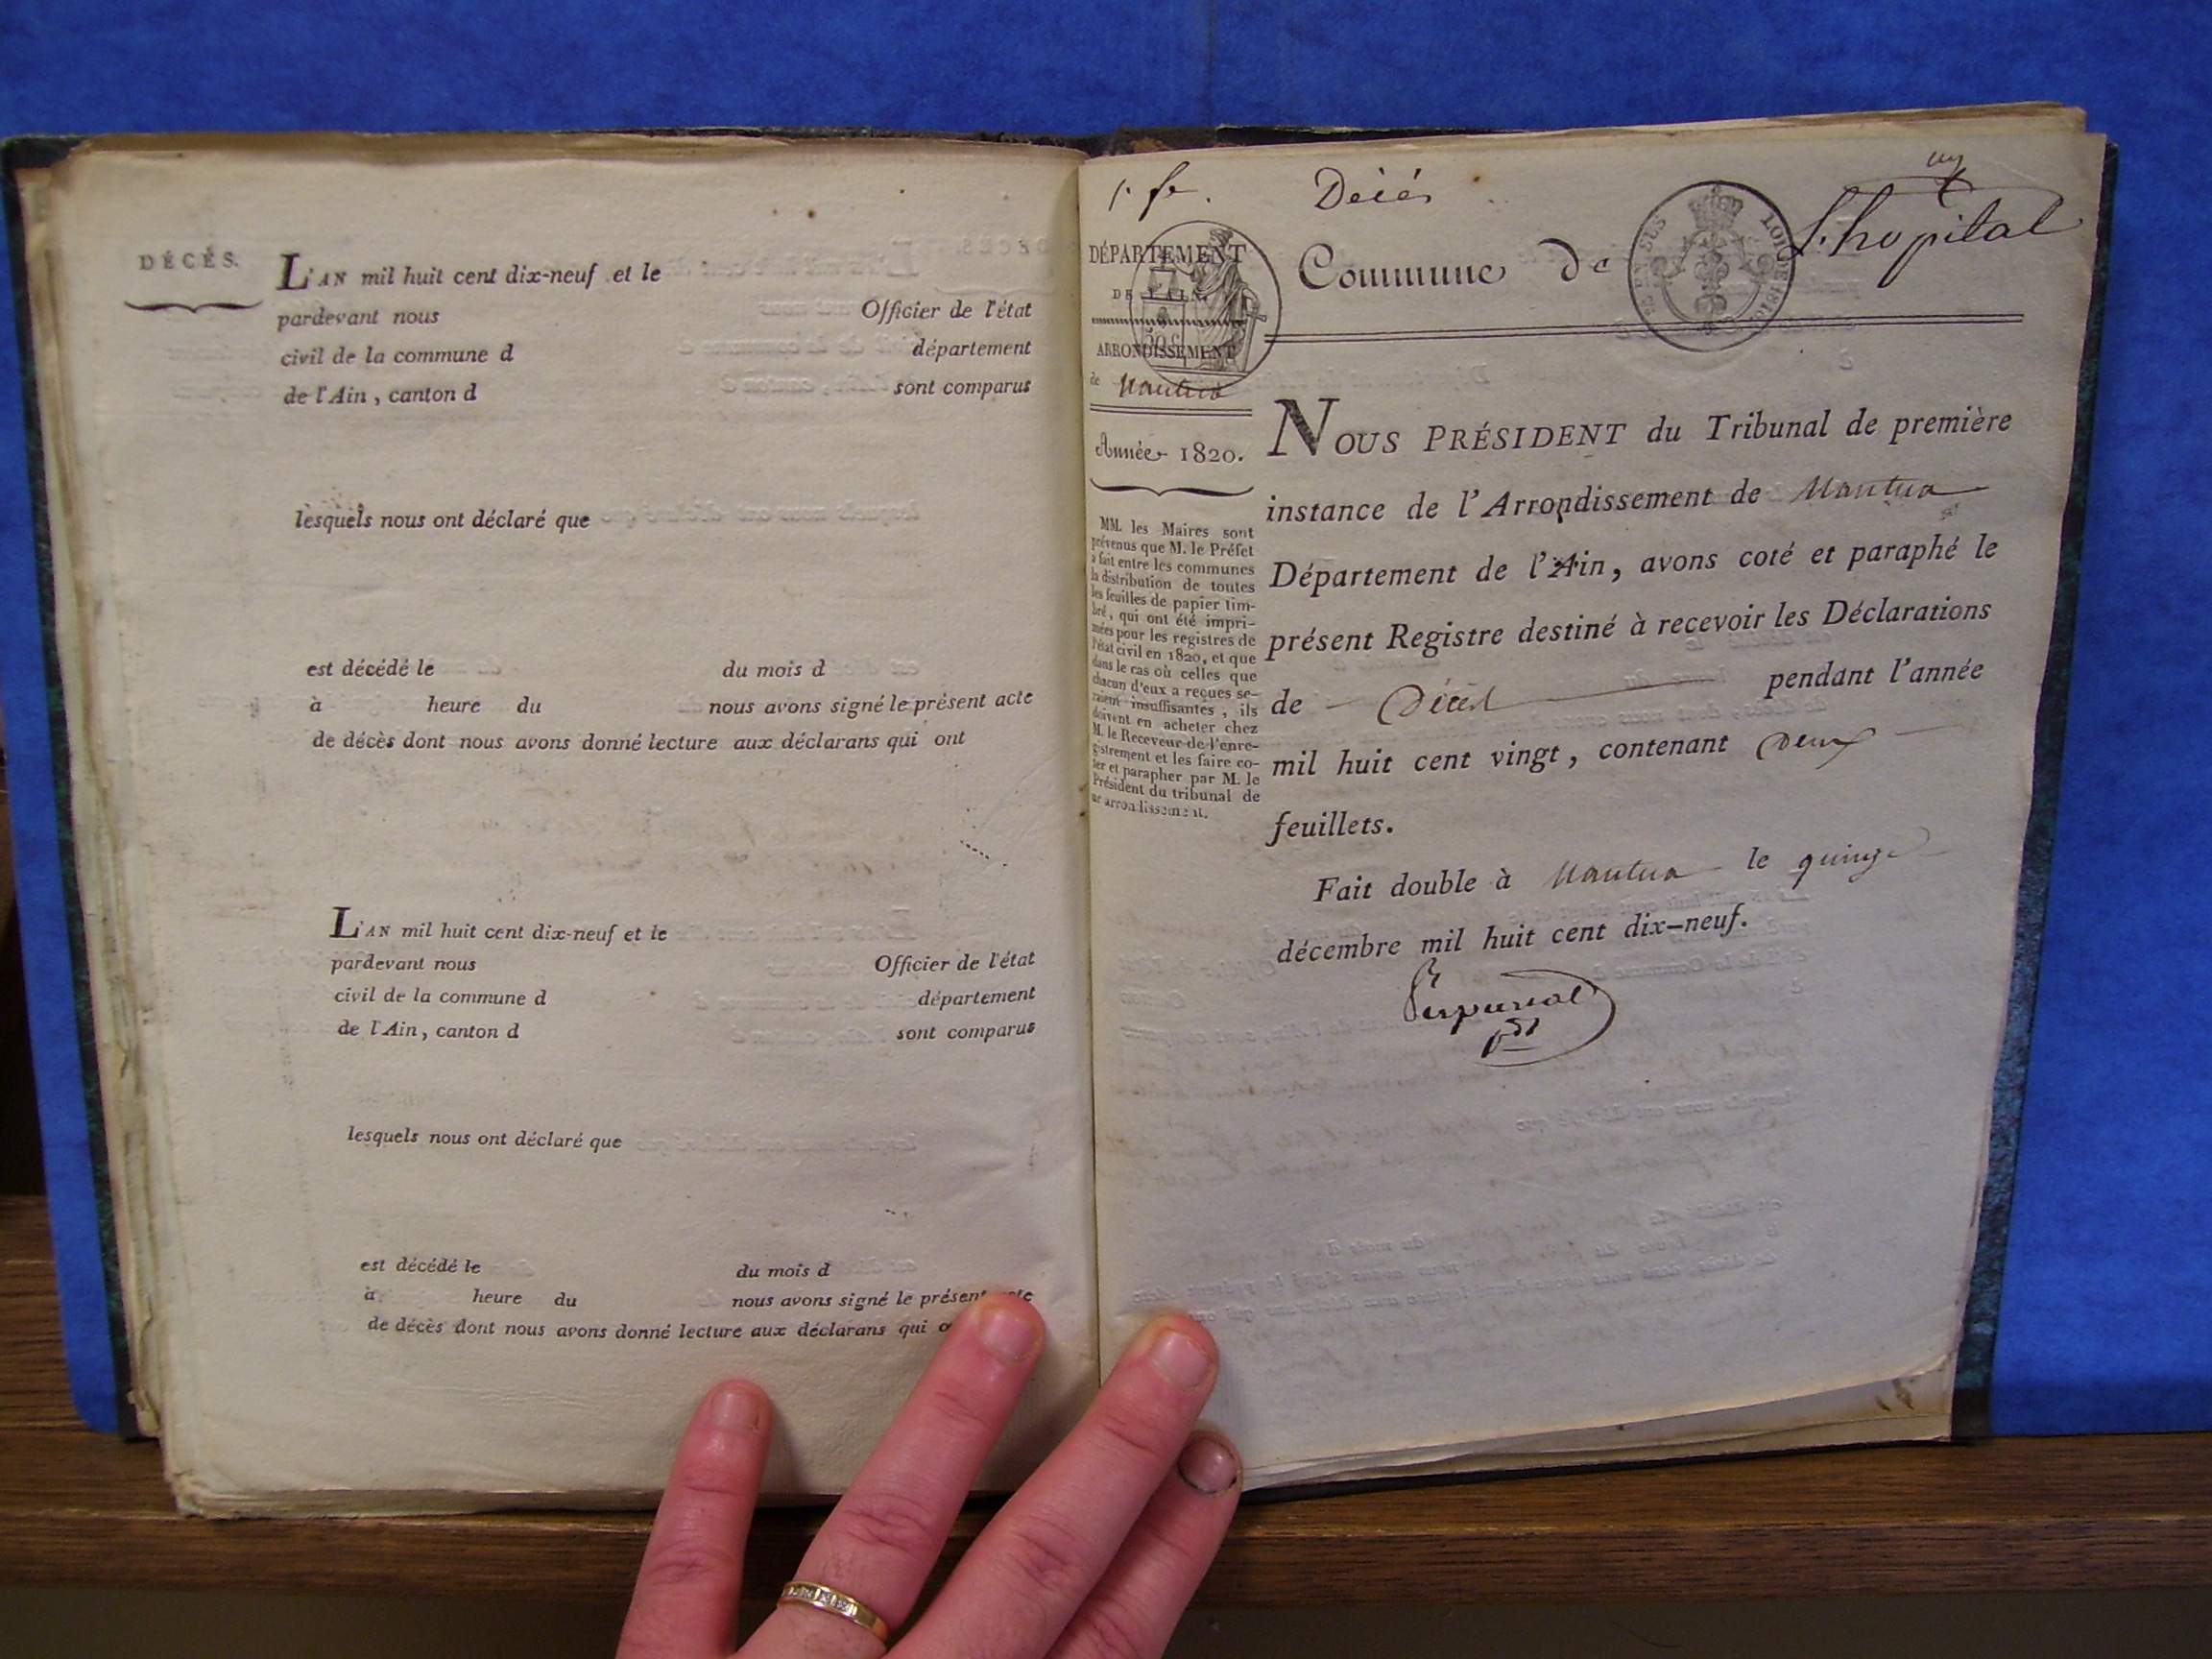 DÉCÈS.
L'AN mil huit cent dix-neuf et le
pardevant nous Officier de l'état
civil de la commune d département
de l'Ain, canton d sont comparus
lesquels nous ont déclaré que
est décédé le du mois d
à heure du nous avons signé le présent acte
de décès dont nous avons donné lecture aux déclarans qui ont
L'AN mil huit cent dix-neuf et le
pardevant nous Officier de l'état
civil de la commune d département
de l'Ain, canton d sont comparus
lesquels nous ont déclaré que
est décédé le du mois d
à heure du nous avons signé le présent acte
de décès dont nous avons donné lecture aux déclarans qui
Décés
Commune de L'hopital
DÉPARTEMENT
DE L'AIN.
ARRONDISSEMENT
de Nantua
Année 1820.
MM. les Maires sont
prévenus que M. le Préfet
a fait entre les communes
la distribution de toutes
les feuilles de papier tim-
bré, qui ont été impri-
mées pour les registres de
l'état civil en 1820, et que
dans le cas où celles que
chacun d'eux a reçues se-
raient insuffisantes, ils
doivent en acheter chez
M. le Receveur de l'enre-
gistrement et les faire co-
ter et parapher par M. le
Président du tribunal de
arrondissement.
NOUS PRÉSIDENT du Tribunal de première
instance de l'Arrondissement de Nantua
Département de l'Ain, avons coté et paraphé le
présent Registre destiné à recevoir les Déclarations
de Décès pendant l'année
mil huit cent vingt, contenant Deux
feuillets.
Fait double à Nantua le quinze
décembre mil huit cent dix-neuf.